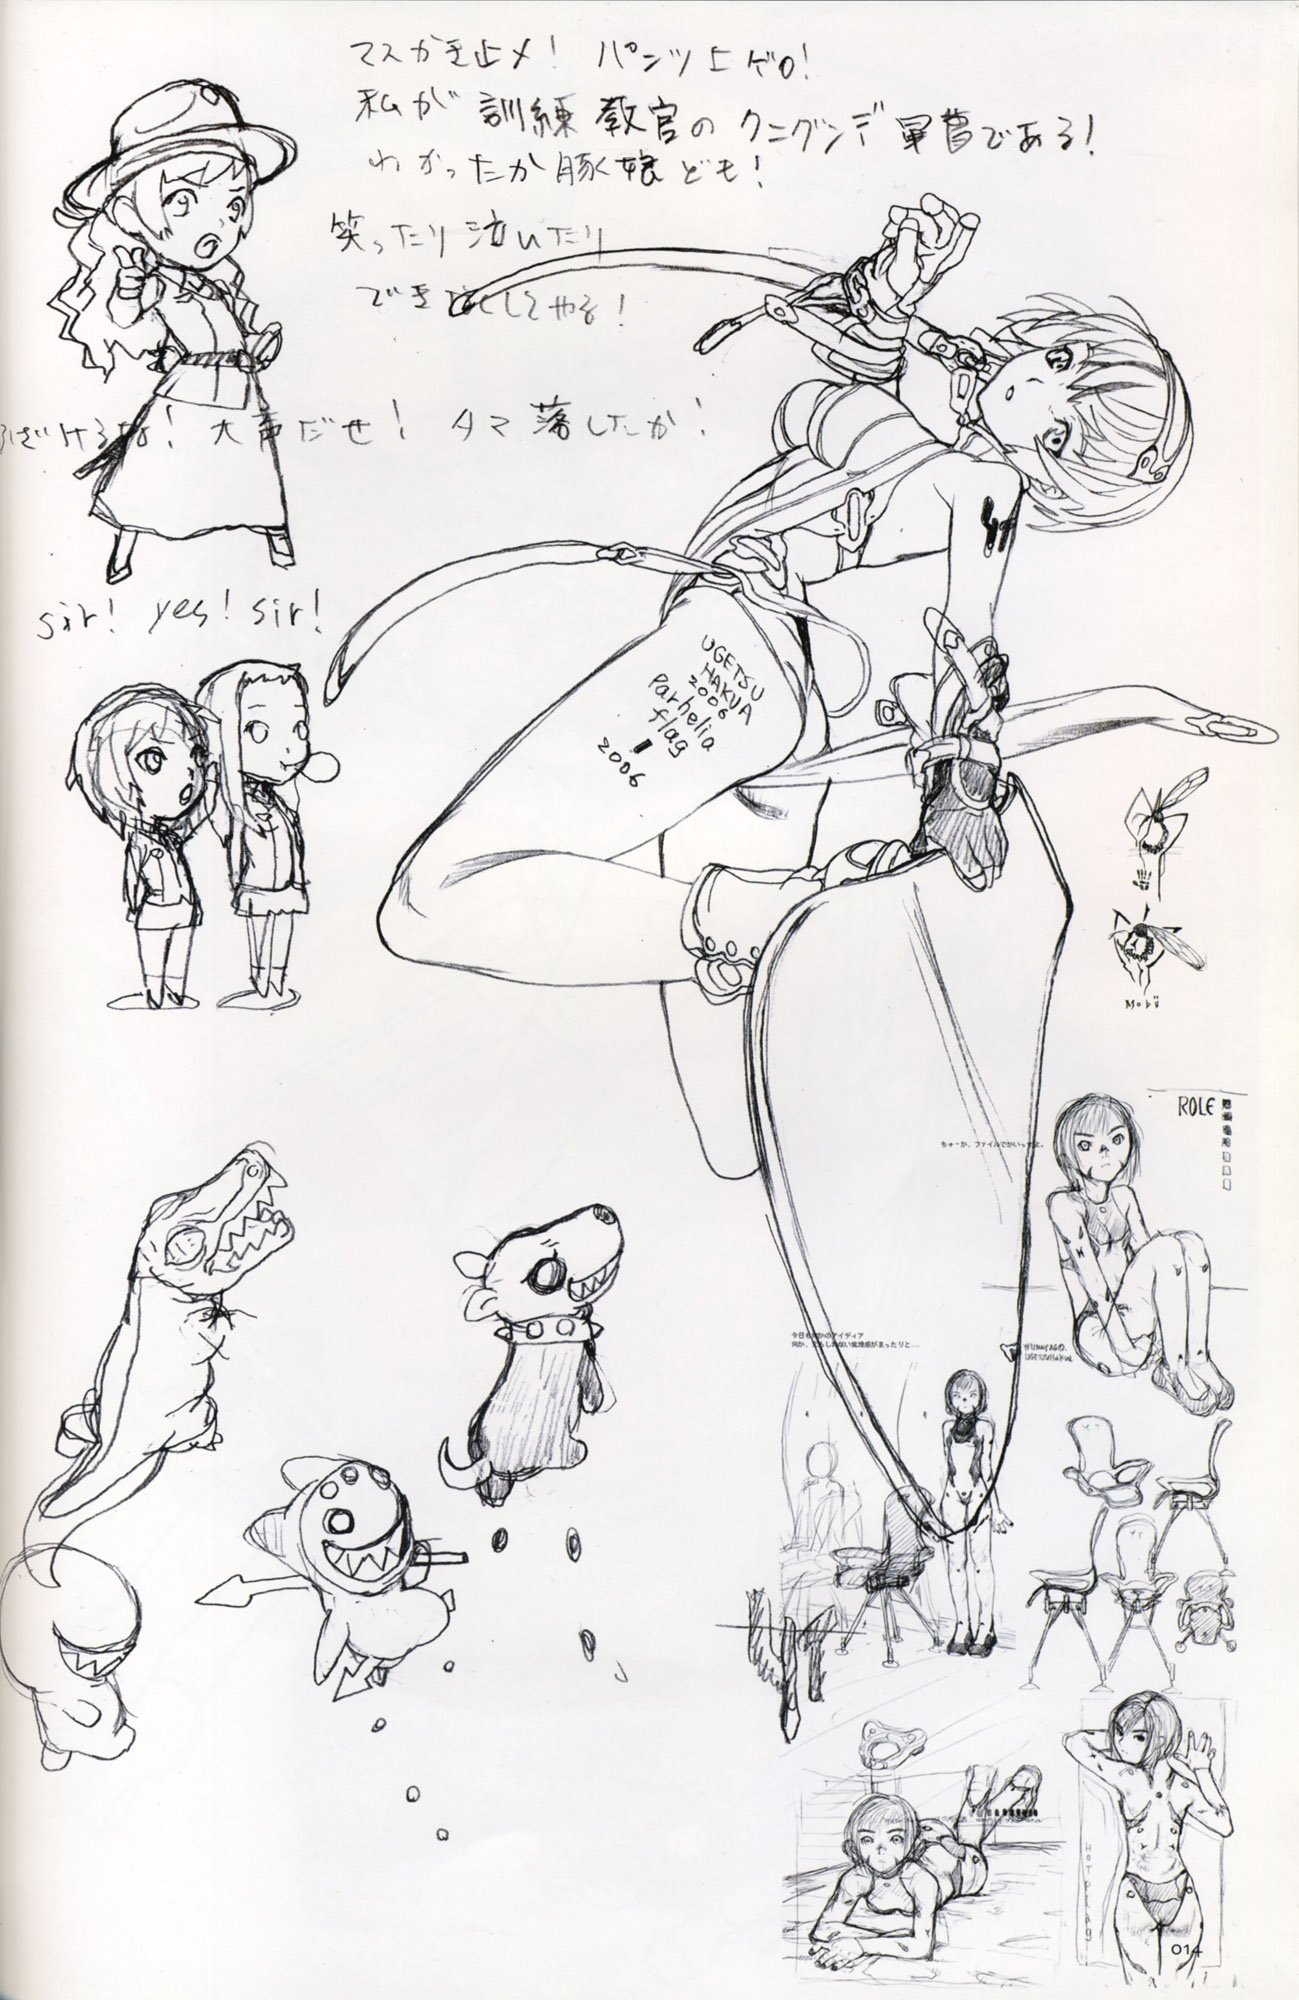 マスかき止メ！ パンツ上ゲロ！
私が訓練教官のクニグンデ軍曹である！
わかったか豚娘ども！
笑ったり泣いたり
できなくしてやる！
ふざけるな！ 大声だせ！ タマ落したか！
sir! yes! sir!
UGETSU
HAKUA
2006
Parhelia
flag
2006
Mobü
ROLE
ちゅーか、ファイルでかいっすよ。
UGETSUHAKUA
HOTPLAG
014